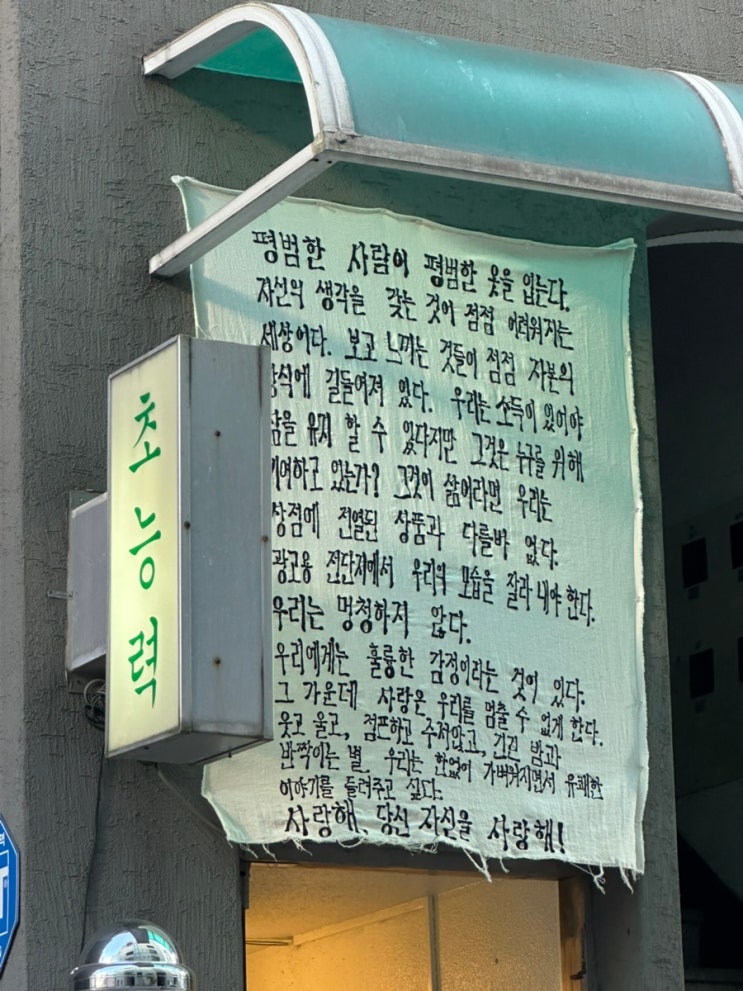 초능력
평범한 사람이 평범한 옷을 입는다.
자신의 생각을 갖는 것이 점점 어려워지는
세상이다. 보고 느끼는 것들이 점점 자본의
방식에 길들여져 있다. 우리는 소득이 있어야
삶을 유지 할 수 있다지만 그것은 누구를 위해
기여하고 있는가? 그것이 삶이라면 우리는
상점에 진열된 상품과 다를바 없다.
광고용 전단지에서 우리의 모습을 잘라 내야 한다.
우리는 멍청하지 않다.
우리에게는 훌륭한 감정이라는 것이 있다.
그 가운데 사랑은 우리를 멈출 수 없게 한다.
웃고 울고, 점프하고 주저앉고, 긴긴 밤과
반짝이는 별. 우리는 한없이 가벼워지면서 유쾌한
이야기를 들려주고 싶다.
사랑해, 당신 자신을 사랑해!